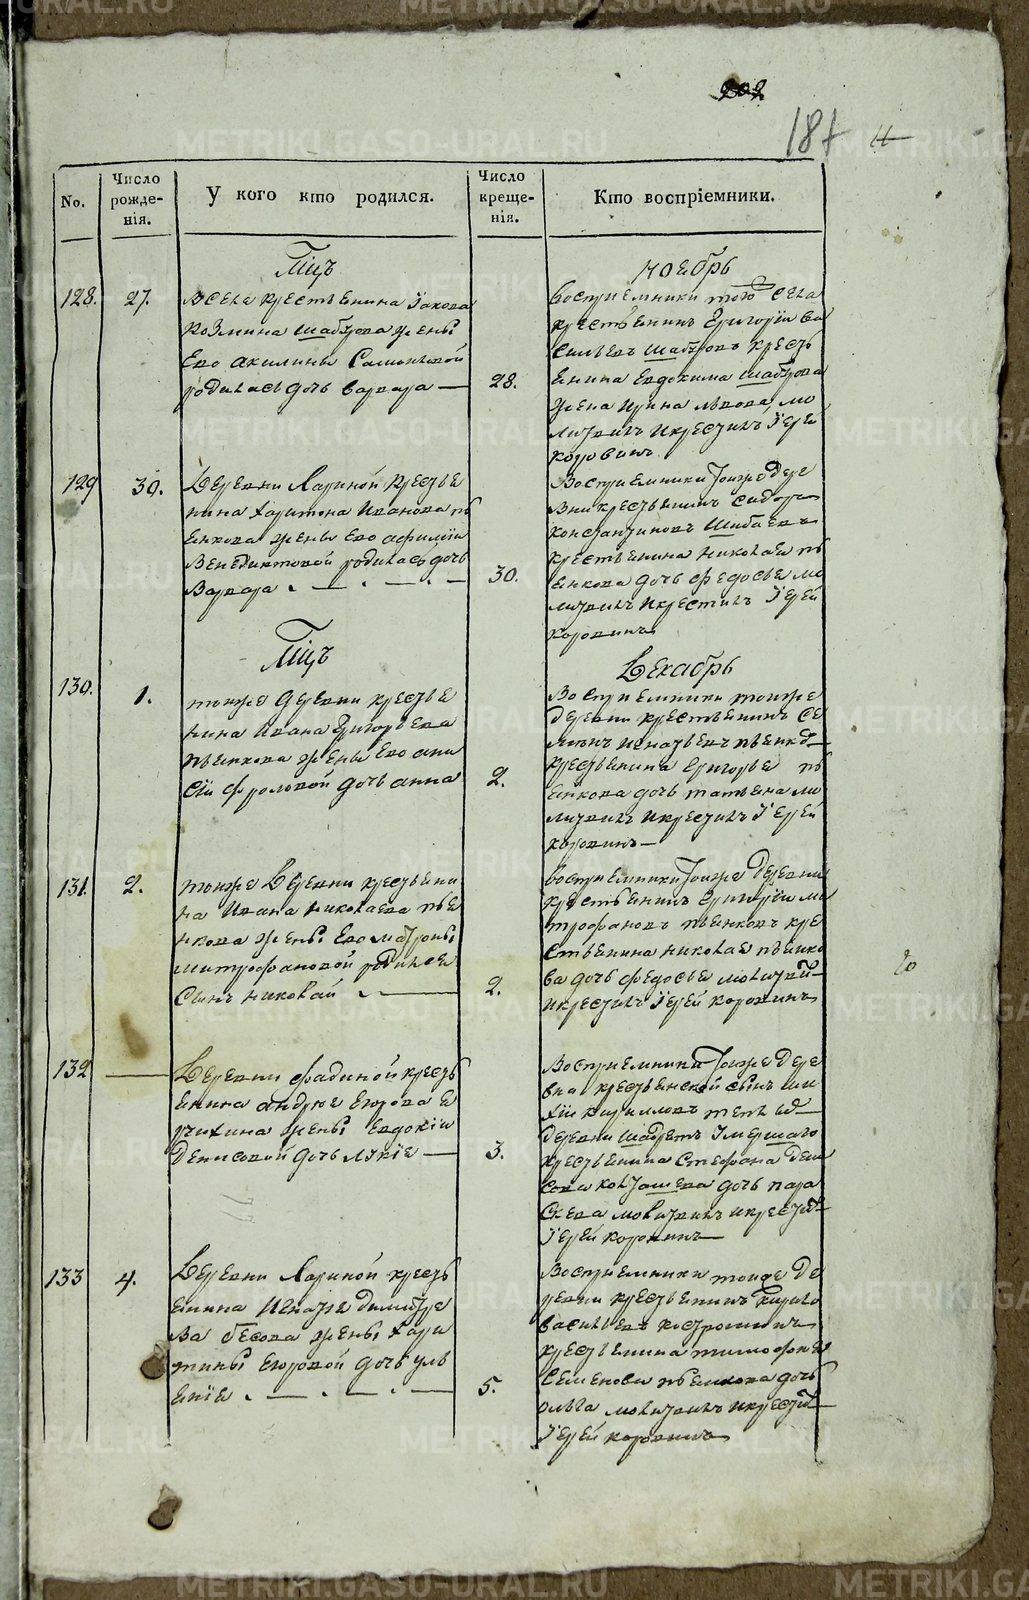 METRIKI.GASO-URAL.RU
202
187
No.
Число рожденія.
У кого кто родился.
Число крещенія.
Кто воспріемники.
Мцъ
Ноябрь
128.
27.
В селе крестьянина Іакова
Козмина Шабурова жены
Его Акилины
родилась дочь Варвара
28.
Воспріемники того села
крестьянинъ Григорій Ва
сильевъ Шабуровъ кресть
янина Евдокима Шабурова
жена Ирина Львова, мо
литвилъ и крестилъ Іерей
Коровинъ
129
30.
Деревни Лариной крестья
нина Харитона Иванова пь
янкова жены его
Венедиктовой родилась дочь
Варвара
30.
Воспріемники тоеже дере
вни крестьянинъ Сидоръ
Константиновъ Шибаевъ
крестьянина Николая пь
янкова дочь Федосья мо
литвилъ и крестилъ Іерей
Коровинъ
Мцъ
Декабрь
130.
1.
тоиже деревни крестья
нина Ивана Григорьева
пьянкова жены его ани
сіи Фроловой дочь анна
2.
Воспріемники тоиже
деревни крестьянинъ Се
менъ Игнатьевъ пьянков
крестьянина Григорья пь
янкова дочь татьяна мо
литвилъ и крестилъ Іерей
Коровинъ
131.
2.
тоиже деревни крестьяни
на Ивана Николаева пья
нкова жены его матроны
митрофановой родился
сынъ Николай
2.
Воспріемники тоиже деревни
крестьянинъ Григорій ми
трофановъ пьянковъ кре
стьянина Николая пьянко
ва дочь федосья молитвил
и крестилъ Іерей Коровинъ
132
Деревни фадиной кресть
янина андрея Егорова
жены Евдокіи
Денисовой дочь Лукія
3.
Воспріемники тоиже дере
вни крестьянской сынъ
Кириловъ
деревни
крестьянина Стефана
дочь пара
скева молитвилъ и крестил
Іерей Коровинъ
133
4.
Деревни Лариной кресть
янина Игнатья Димитрие
ва бесова жены Хари
тины Егоровой дочь уль
янія
5.
Воспріемники тоиже де
ревни крестьянинъ Кирило
Васильевъ Костроминъ
крестьянина тимофея
Семенова пьянкова дочь
ольга молитвилъ и крестил
Іерей Коровинъ